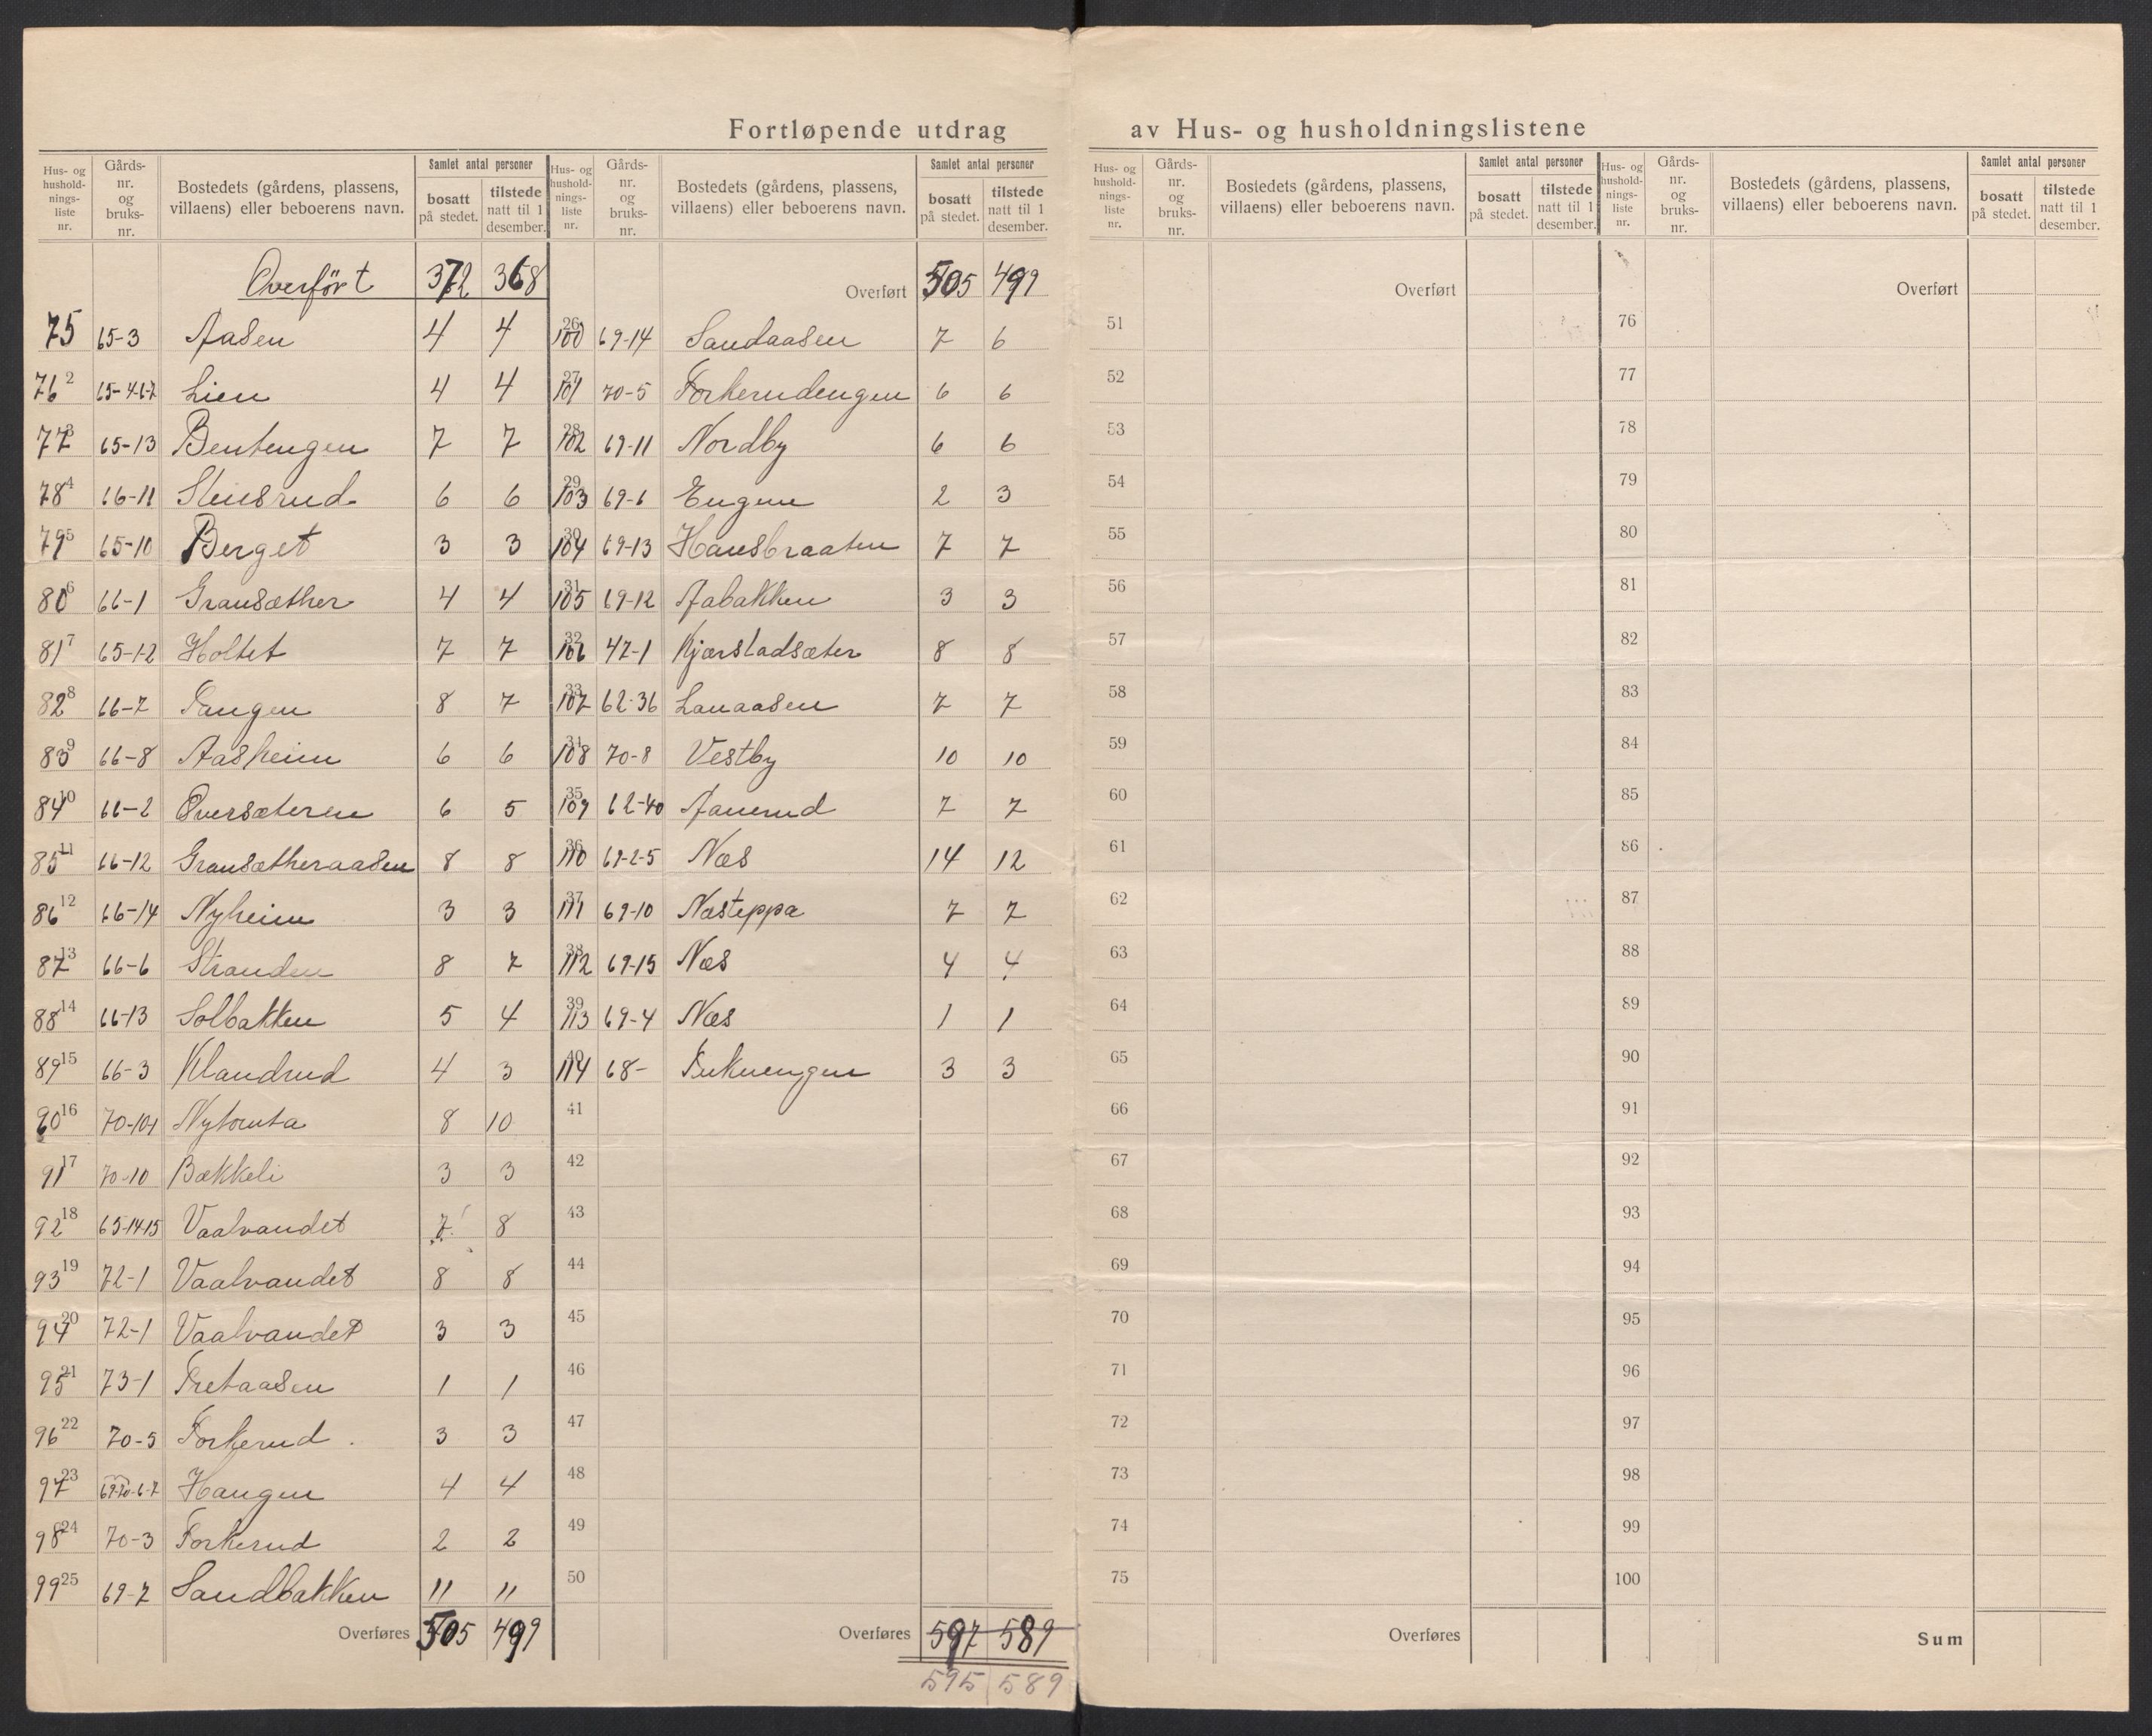 Fortløpende utdrag av Hus- og husholdningslistene
Hus- og hushold- nings- liste nr. Gårds- nr. og bruks- nr. Bostedets (gårdens, plassens, villaens) eller beboerens navn. Samlet antal personer bosatt på stedet. tilstede natt til 1 desember.
Overført 372 368
75 65-3 Aasen 4 4
76 2 65-4-6-7 Lien 4 4
77 3 65-13 Bentengen 7 7
78 4 66-11 Stensrud 6 6
79 5 65-10 Berget 3 3
80 6 66-1 Gransæther 4 4
81 7 65-12 Holtet 7 7
82 8 66-7 Tangen 8 7
83 9 66-8 Aasheim 6 6
84 10 66-2 Oversæteren 6 5
85 11 66-12 Gransætheraasen 8 8
86 12 66-14 Nyheim 3 3
87 13 66-6 Stranden 8 7
88 14 66-13 Solbakken 5 4
89 15 66-3 Klandrud 4 3
90 16 70-10-1 Nytomta 8 10
91 17 70-10 Bækkeli 3 3
92 18 65-14-15 Vaalvandet 7 8
93 19 72-1 Vaalvandet 8 8
94 20 72-1 Vaalvandet 3 3
95 21 73-1 Tretaasen 1 1
96 22 70-5 Forkerud 3 3
97 23 69-70-6-7 Haugen 4 4
98 24 70-3 Forkerud 2 2
99 25 69-7 Sandbakken 11 11
Overføres 505 499
Hus- og hushold- nings- liste nr. Gårds- nr. og bruks- nr. Bostedets (gårdens, plassens, villaens) eller beboerens navn. Samlet antal personer bosatt på stedet. tilstede natt til 1 desember.
Overført 505 499
26 100 69-14 Sandaasen 7 6
27 101 70-5 Forkerudengen 6 6
28 102 69-11 Nordby 6 6
29 103 69-6 Engene 2 3
30 104 69-13 Hansbraaten 7 7
31 105 69-12 Aabakken 3 3
32 106 47-1 Kjærstadsæter 8 8
33 107 62-36 Lanaasen 7 7
34 108 70-8 Vestby 10 10
35 109 62-40 Aanerud 7 7
36 110 69-2-5 Næs 14 12
37 111 69-10 Næsteppa 7 7
38 112 69-15 Næs 4 4
39 113 69-4 Næs 1 1
40 114 68- 3 3
41
42
43
44
45
46
47
48
49
50
Overføres 597 589
595 589
Hus- og hushold- nings- liste nr. Gårds- nr. og bruks- nr. Bostedets (gårdens, plassens, villaens) eller beboerens navn. Samlet antal personer bosatt på stedet. tilstede natt til 1 desember.
Overført
51
52
53
54
55
56
57
58
59
60
61
62
63
64
65
66
67
68
69
70
71
72
73
74
75
Overføres
Hus- og hushold- nings- liste nr. Gårds- nr. og bruks- nr. Bostedets (gårdens, plassens, villaens) eller beboerens navn. Samlet antal personer bosatt på stedet. tilstede natt til 1 desember.
Overført
76
77
78
79
80
81
82
83
84
85
86
87
88
89
90
91
92
93
94
95
96
97
98
99
100
Sum